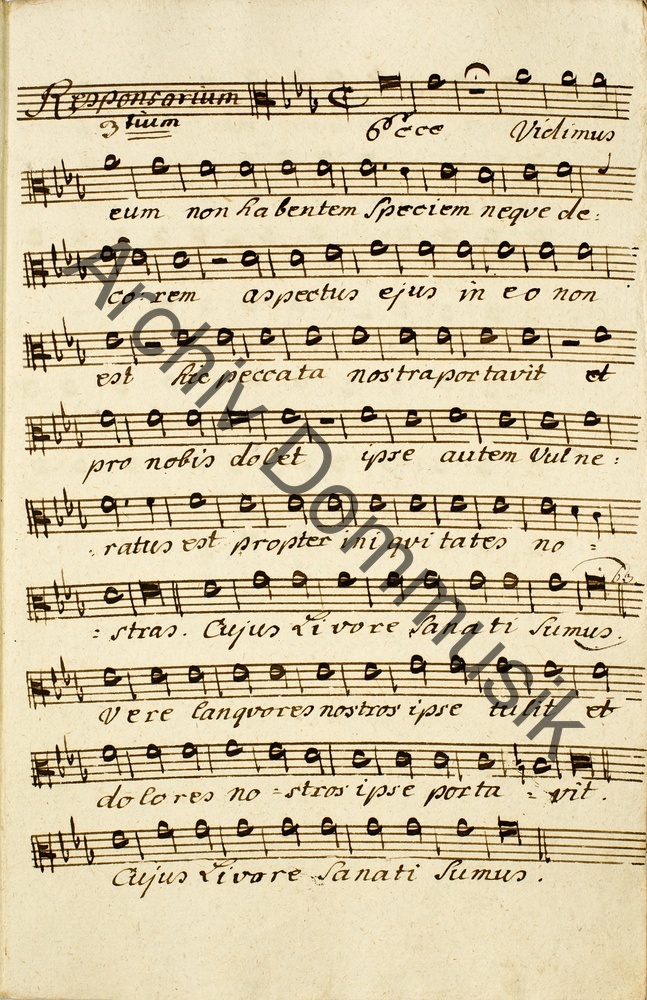 Responsorium
3 tium
Ecce Vidimus
eum non habentem Speciem neque de:
co-rem aspectus ejus in eo non
est hic peccata nostra portavit et
pro nobis dolet ipse autem Vulne:
ratus est propter iniquitates no =
= stras. Cujus Livore Sanati Sumus.
Vere languores nostros ipse tulit et
dolores no = stros ipse porta = vit.
Cujus Livore Sanati Sumus.
Archiv Dommusik